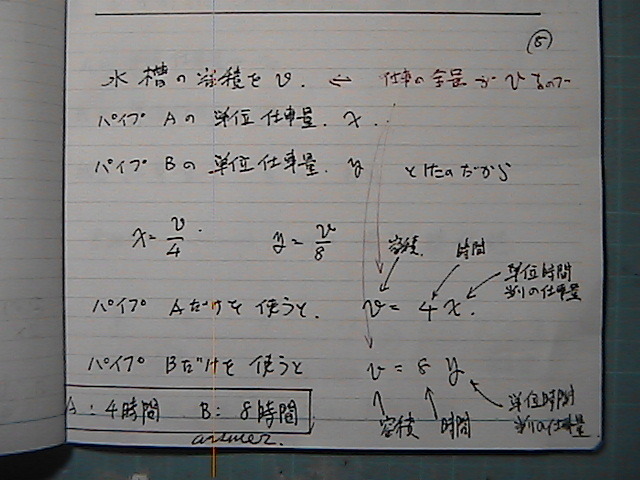 ⑤
水槽の容積を v. ⇌ 仕事の全量が v なので
パイプ Aの 単位仕事量. x.
パイプ Bの 単位仕事量. y とけたのだから
x = v/4. y = v/8
容積. 時間 単位時間
当りの仕事量
パイプ Aだけを使うと. v = 4x.
パイプ Bだけを使うと v = 8y
A : 4時間 B : 8時間
容積 時間 単位時間
当りの仕事量
answer.